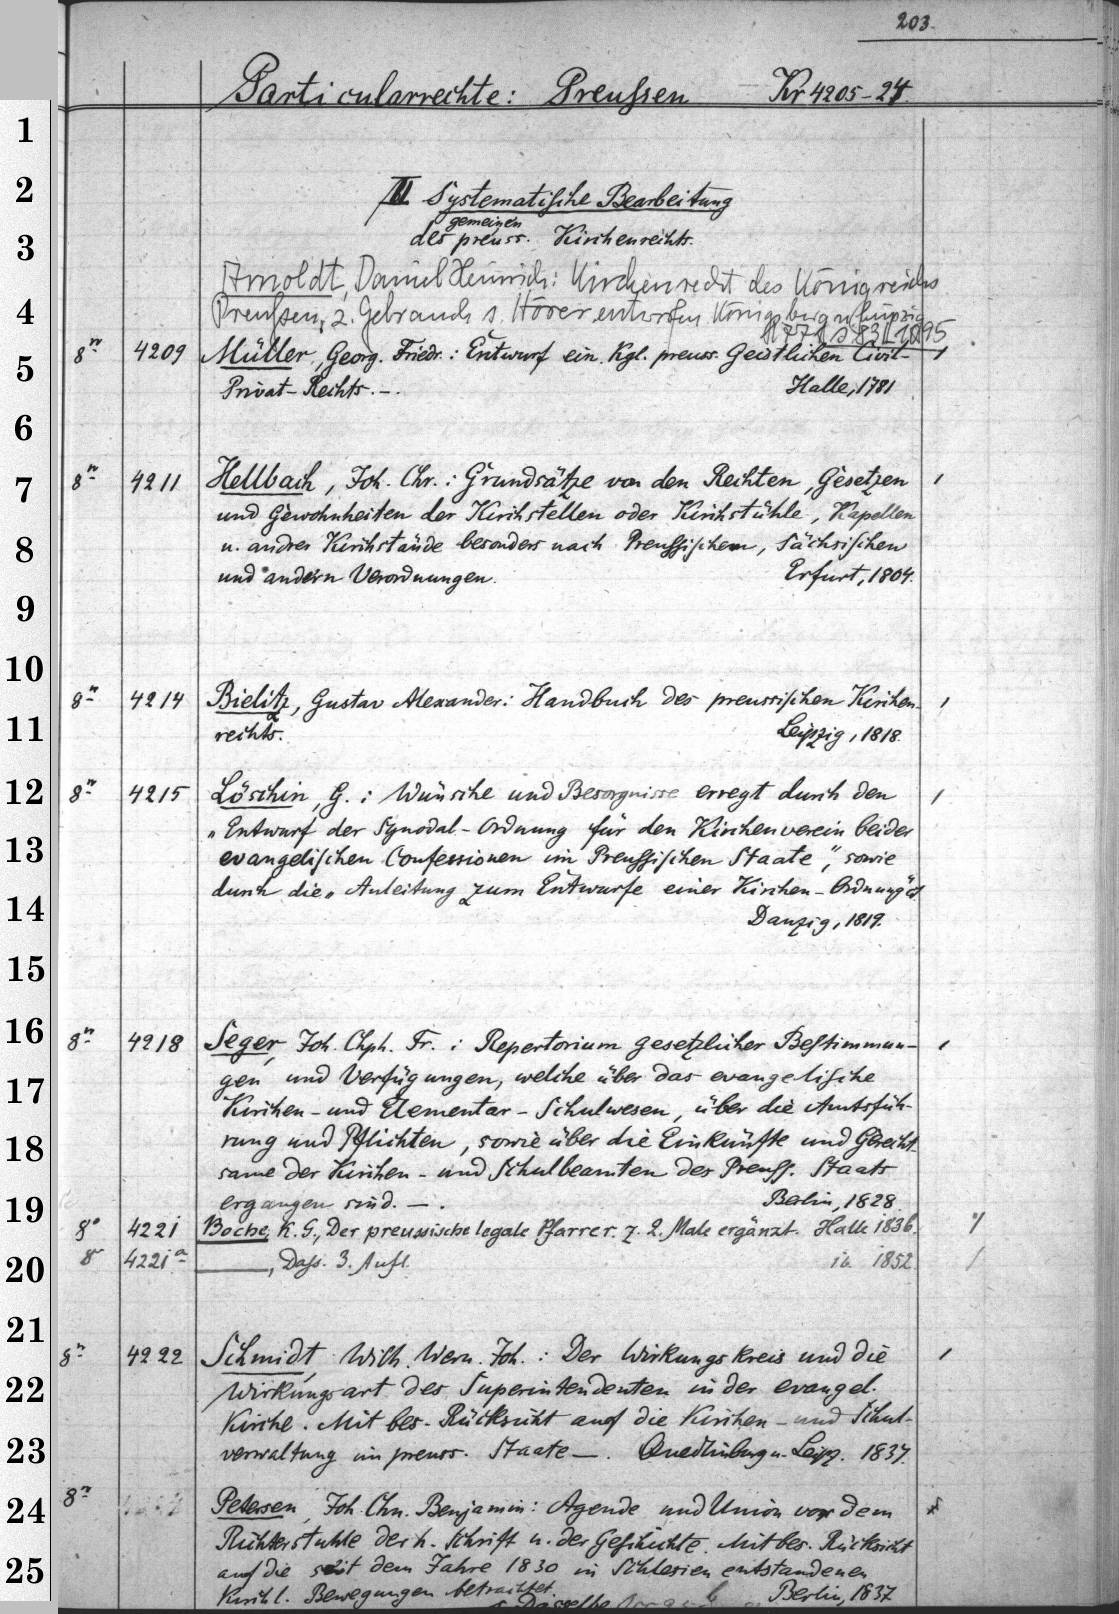 203.
Particularrechte: Preußen Kr 4205-24.
1
2
3
4
5
6
7
8
9
10
11
12
13
14
15
16
17
18
19
20
21
22
23
24
25
II Systematische Bearbeitung
gemeinen
des preuss. Kirchenrechts.
Arnoldt, Daniel Heinrich: Kirchenrecht des Königreichs
Preußen, z. Gebrauch s. Hörer entworfen Königsberg u. Leipzig
1771
8° 4209 Müller, Georg. Friedr.: Entwurf ein. Kgl. preuss. Geistlichen Civil-
Privat-Rechts. -. Halle, 1781
8° 4211 Hellbach, Joh. Chr.: Grundsätze von den Rechten, Gesetzen
und Gewohnheiten der Kirchstellen oder Kirchstühle, Kapellen
u. andrer Kirchstände besonders nach Preußischen, Sächsischen
und andern Verordnungen. Erfurt, 1804.
8° 4214 Bielitz, Gustav Alexander: Handbuch des preussischen Kirchen-
rechts. Leipzig, 1818.
8° 4215 Löschin, G.: Wünsche und Besorgnisse erregt durch den
„Entwurf der Synodal-Ordnung für den Kirchenverein beider
evangelischen Confessionen im Preußischen Staate", sowie
durch die „Anleitung zum Entwurfe einer Kirchen-Ordnung"
Danzig, 1819.
8° 4218 Seger, Joh. Chph. Fr.: Repertorium gesetzlicher Bestimmun-
gen und Verfügungen, welche über das evangelische
Kirchen- und Elementar-Schulwesen, über die Amtsfüh-
rung und Pflichten, sowie über die Einkünfte und Gerecht-
same der Kirchen- und Schulbeamten des Preuß. Staats
ergangen sind. -. Berlin, 1828
8° 4221 Boche, K. G., Der preussische legale Pfarrer. z. 2. Male ergänzt. Halle 1836.
8° 4221a ———, Dass. 3. Aufl. ib. 1852
8° 4222 Schmidt, Wilh. Wern. Joh.: Der Wirkungskreis und die
Wirkungsart des Superintendenten in der evangel.
Kirche. Mit bes. Rücksicht auf die Kirchen- und Schul-
verwaltung im preuss. Staate -. Quedlinburg u. Leipz. 1837.
8° Petersen, Joh. Chn. Benjamin: Agende und Union vor dem
Richterstuhle der h. Schrift u. der Geschichte. Mit bes. Rücksicht
auf die seit dem Jahre 1830 in Schlesien entstandenen
Kirchl. Bewegungen betrachtet. Berlin, 1837